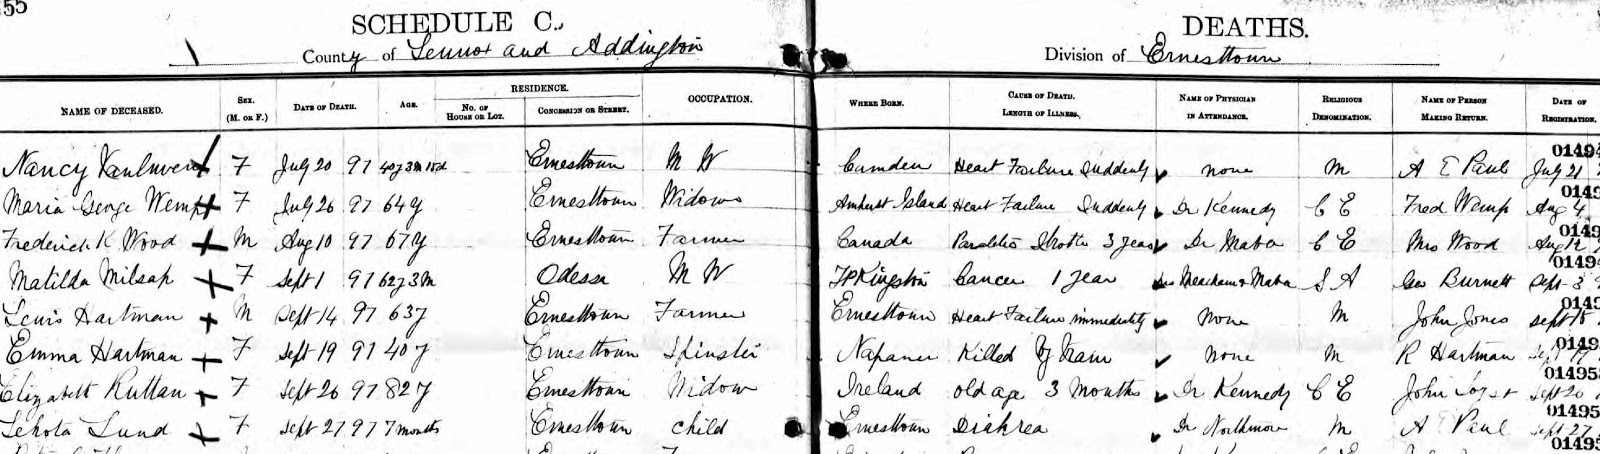 55
SCHEDULE C. DEATHS.
County of Lennox and Addington Division of Ernesttown
NAME OF DECEASED. SEX. (M. OR F.) DATE OF DEATH. AGE. RESIDENCE. NO. OF HOUSE OR LOT. CONCESSION OR STREET. OCCUPATION. WHERE BORN. CAUSE OF DEATH. LENGTH OF ILLNESS. NAME OF PHYSICIAN IN ATTENDANCE. RELIGIOUS DENOMINATION. NAME OF PERSON MAKING RETURN. DATE OF REGISTRATION.
01494
Nancy Vanluven F July 20 97 40y 3m 15d Ernesttown M W Camden Heart Failure Suddenly none M A E Paul July 21
Maria George Wemp F July 26 97 64y Ernesttown Widow Amhust Island Heart Failure Suddenly Dr Kennedy C E Fred Wemp Aug 4
Frederick K Wood M Aug 10 97 67y Ernesttown Farmer Canada 3 years Dr Mabee C E Mrs Wood Aug 12
Matilda Milsap F Sept 1 97 62y 3m Odessa M W Kingston Cancer 1 year Drs Meacham & Mabee S A Geo Burnett Sept 3
Lewis Hartman M Sept 14 97 63y Ernesttown Farmer Ernesttown Heart Failure immediatly none M John Jones Sept 18
Emma Hartman F Sept 19 97 40y Ernesttown Spinster Napanee Killed by train none M R Hartman Sept
01495
Elizabett Ruttan F Sept 26 97 82y Ernesttown Widow Ireland old age 3 months Dr Kennedy C E John Sept 20
01495
Lund F Sept 27 97 7 months Ernesttown child Ernesttown Diahrea Dr Northmore M A Paul Sept 27
01495